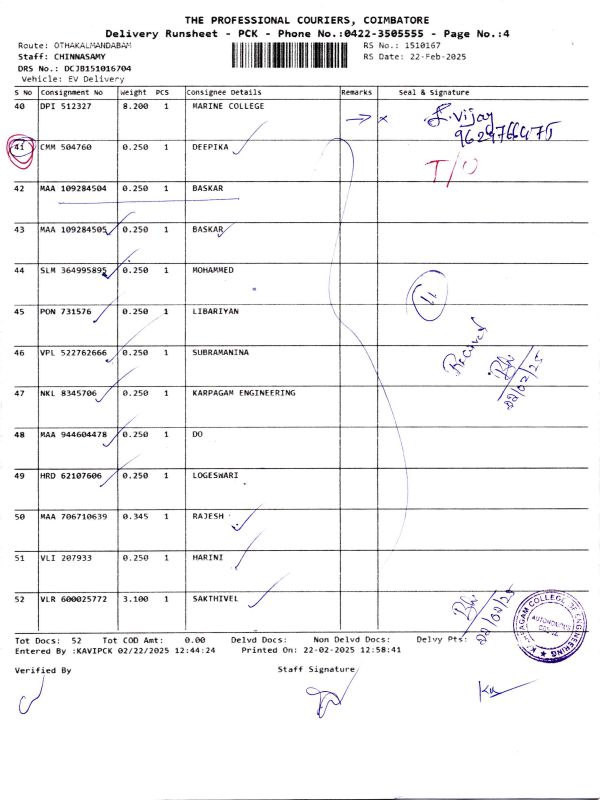 THE PROFESSIONAL COURIERS, COIMBATORE
Delivery Runsheet - PCK - Phone No.:0422-3505555 - Page No.:4
Route: OTHAKALMANDABAM RS No.: 1510167
Staff: CHINNASAMY RS Date: 22-Feb-2025
DRS No.: DCJB151016704
Vehicle: EV Delivery
S No Consignment No Weight PCS Consignee Details Remarks Seal & Signature
40 DPI 512327 8.200 1 MARINE COLLEGE
→ x S. Vijay
9629766475
41 CMM 504760 0.250 1 DEEPIKA T/O
42 MAA 109284504 0.250 1 BASKAR
43 MAA 109284505 0.250 1 BASKAR
44 SLM 364995895 0.250 1 MOHAMMED
11
45 PON 731576 0.250 1 LIBARIYAN
Received
46 VPL 522762666 0.250 1 SUBRAMANINA
22/02/25
47 NKL 8345706 0.250 1 KARPAGAM ENGINEERING
48 MAA 944604478 0.250 1 DO
49 HRD 62107606 0.250 1 LOGESWARI
50 MAA 706710639 0.345 1 RAJESH
51 VLI 207933 0.250 1 HARINI
52 VLR 600025772 3.100 1 SAKTHIVEL
22/02/25
KARPAGAM COLLEGE OF ENGINEERING
AUTONOMOUS
Tot Docs: 52 Tot COD Amt: 0.00 Delvd Docs: Non Delvd Docs: Delvy Pts:
Entered By :KAVIPCK 02/22/2025 12:44:24 Printed On: 22-02-2025 12:58:41
Verified By Staff Signature